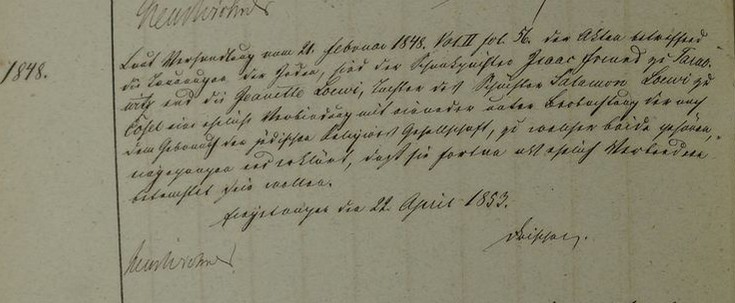 1848.
Laut Verhandlung vom 21. Februar 1848. Vol. II fol. 56. der Akten betreffend
die Trauungen der Juden, sind der Schankpächter Isaac Freund zu
und die Jeanette Loewi, Tochter des Salamon Loewi zu
Cosel eine eheliche Verbindung mit einander unter Beobachtung der nach
dem Gebrauch der jüdischen Religions Gesellschaft, zu welcher beide gehören,
eingegangen und erklärt, daß sie fortan als ehelich Verbundene
betrachtet sein wollen.
Eingetragen den 22. April 1853.